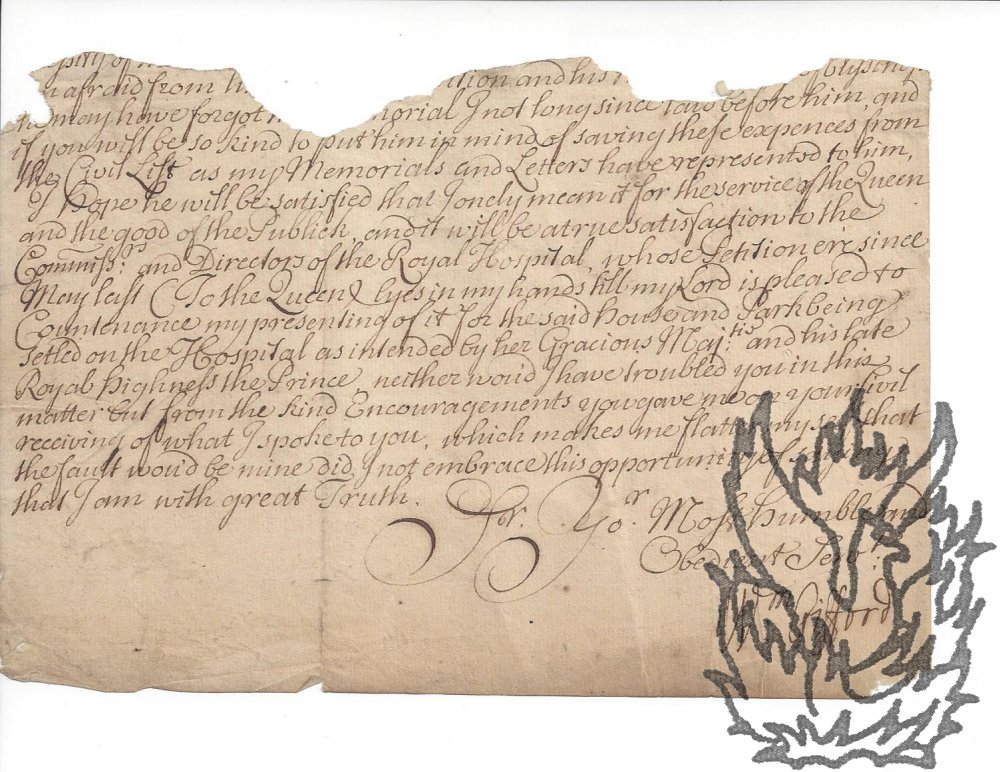 afraid from
may have forgot morial I not long since laid before him, and
if you will be so kind to put him in mind of saving these expences from
the Civil List as my Memorials and Letters have represented to him,
I Hope he will be satisfied that I onely mean it for the service of the Queen
and the good of the Publick, and it will be a true satisfaction to the
Commissrs. and Directors of the Royal Hospital, whose Petition e're since
May last (To the Queen) lyes in my hands till my Lord is pleased to
Countenance my presenting of it for the said House and Park being
setled on the Hospital as intended by her Gracious Majtie. and his late
Royal Highness the Prince, neither wou'd I have troubled you in this
matter but from the kind Encouragements you gave me on your Civil
receiving of what I spoke to you, which makes me flatter my self that
the fault wou'd be mine did I not embrace this opportunity of saying
that I am with great Truth.
Sr. Yor. Most humble and
Obedient Servt.
Wm Gifford